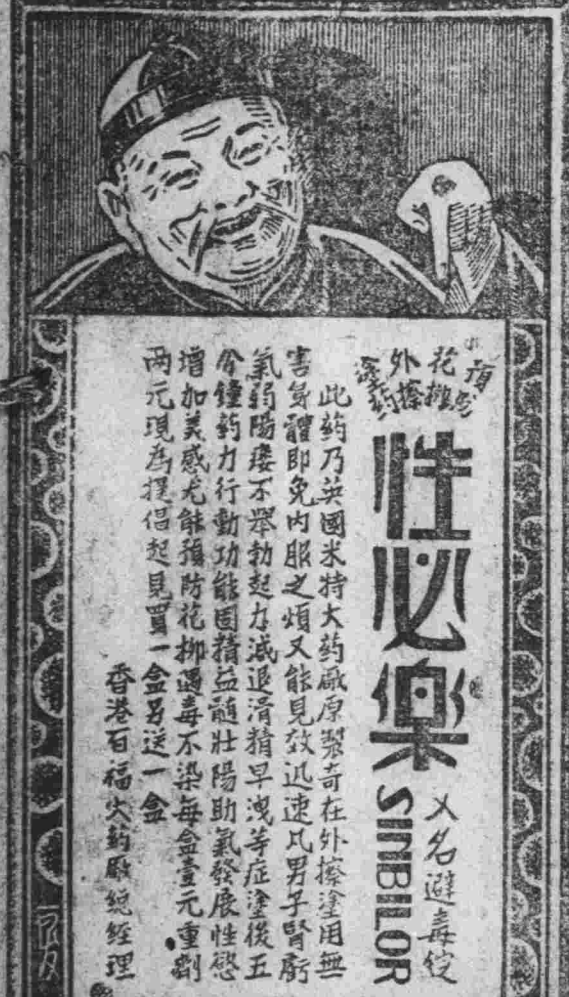 預防
花柳
外擦
塗药
性必樂
SINBILOR
又名避毒锭
此药乃英國米特大药廠原製奇在外擦塗用無
害身體即免內服之煩又能見效迅速凡男子腎虧
氣弱陽痿不舉勃起力减退滑精早洩等症塗後五
分鐘药力行動功能固精益髓壯陽助氣發展性慾
增加美感尤能預防花柳過毒不染每盒壹元重劑
两元現為提倡起見買一盒另送一盒
香港百福大药廠總經理